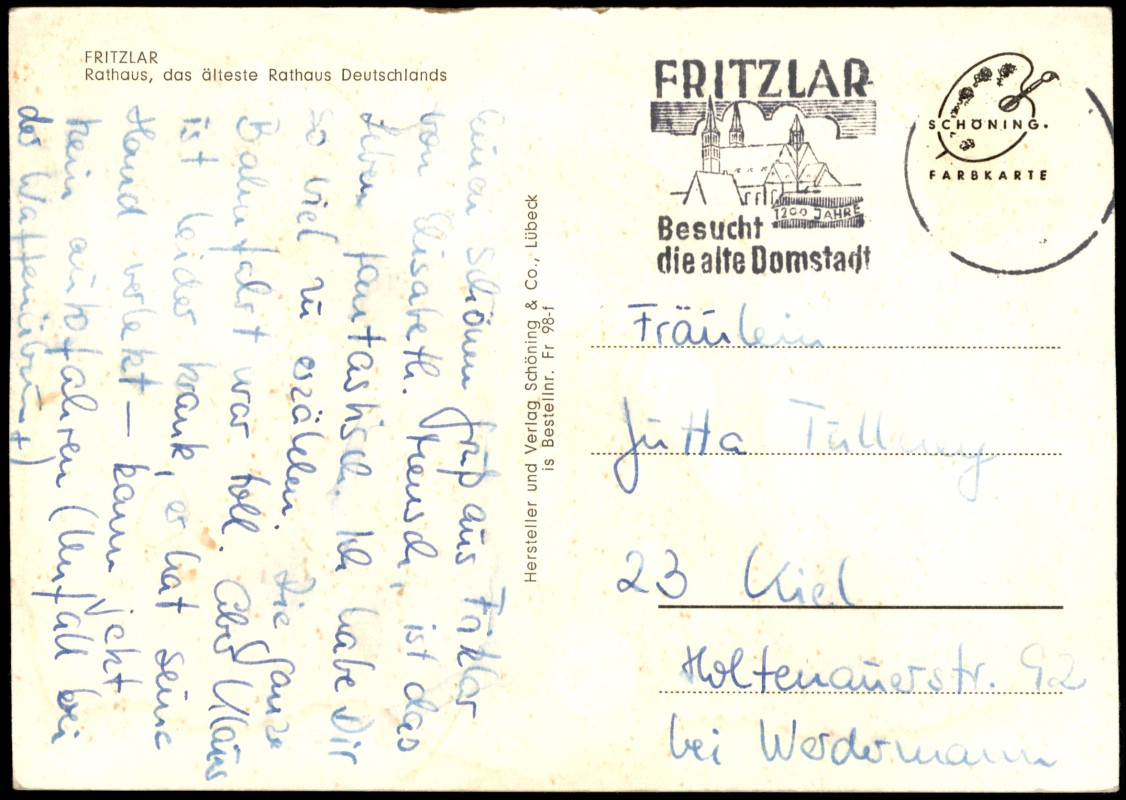 FRITZLAR
Rathaus, das älteste Rathaus Deutschlands
Einen schönen Gruß aus Fritzlar
von Elisabeth. Mensch, ist das
Leben fantastisch. Ich habe Dir
so viel zu erzählen. Die ganze
Bahnfahrt war toll. Aber Klaus
ist leider krank, er hat seine
Hand verletzt – kann jetzt
kein autofahren (Unfall bei
der
Hersteller und Verlag Schöning & Co., Lübeck
is Bestellnr. Fr 98-f
FRITZLAR
1200 JAHRE
Besucht
die alte Domstadt
SCHÖNING.
FARBKARTE
Fräulein
Jutta
23 Kiel
Holtenauerstr. 92
bei Werdermann